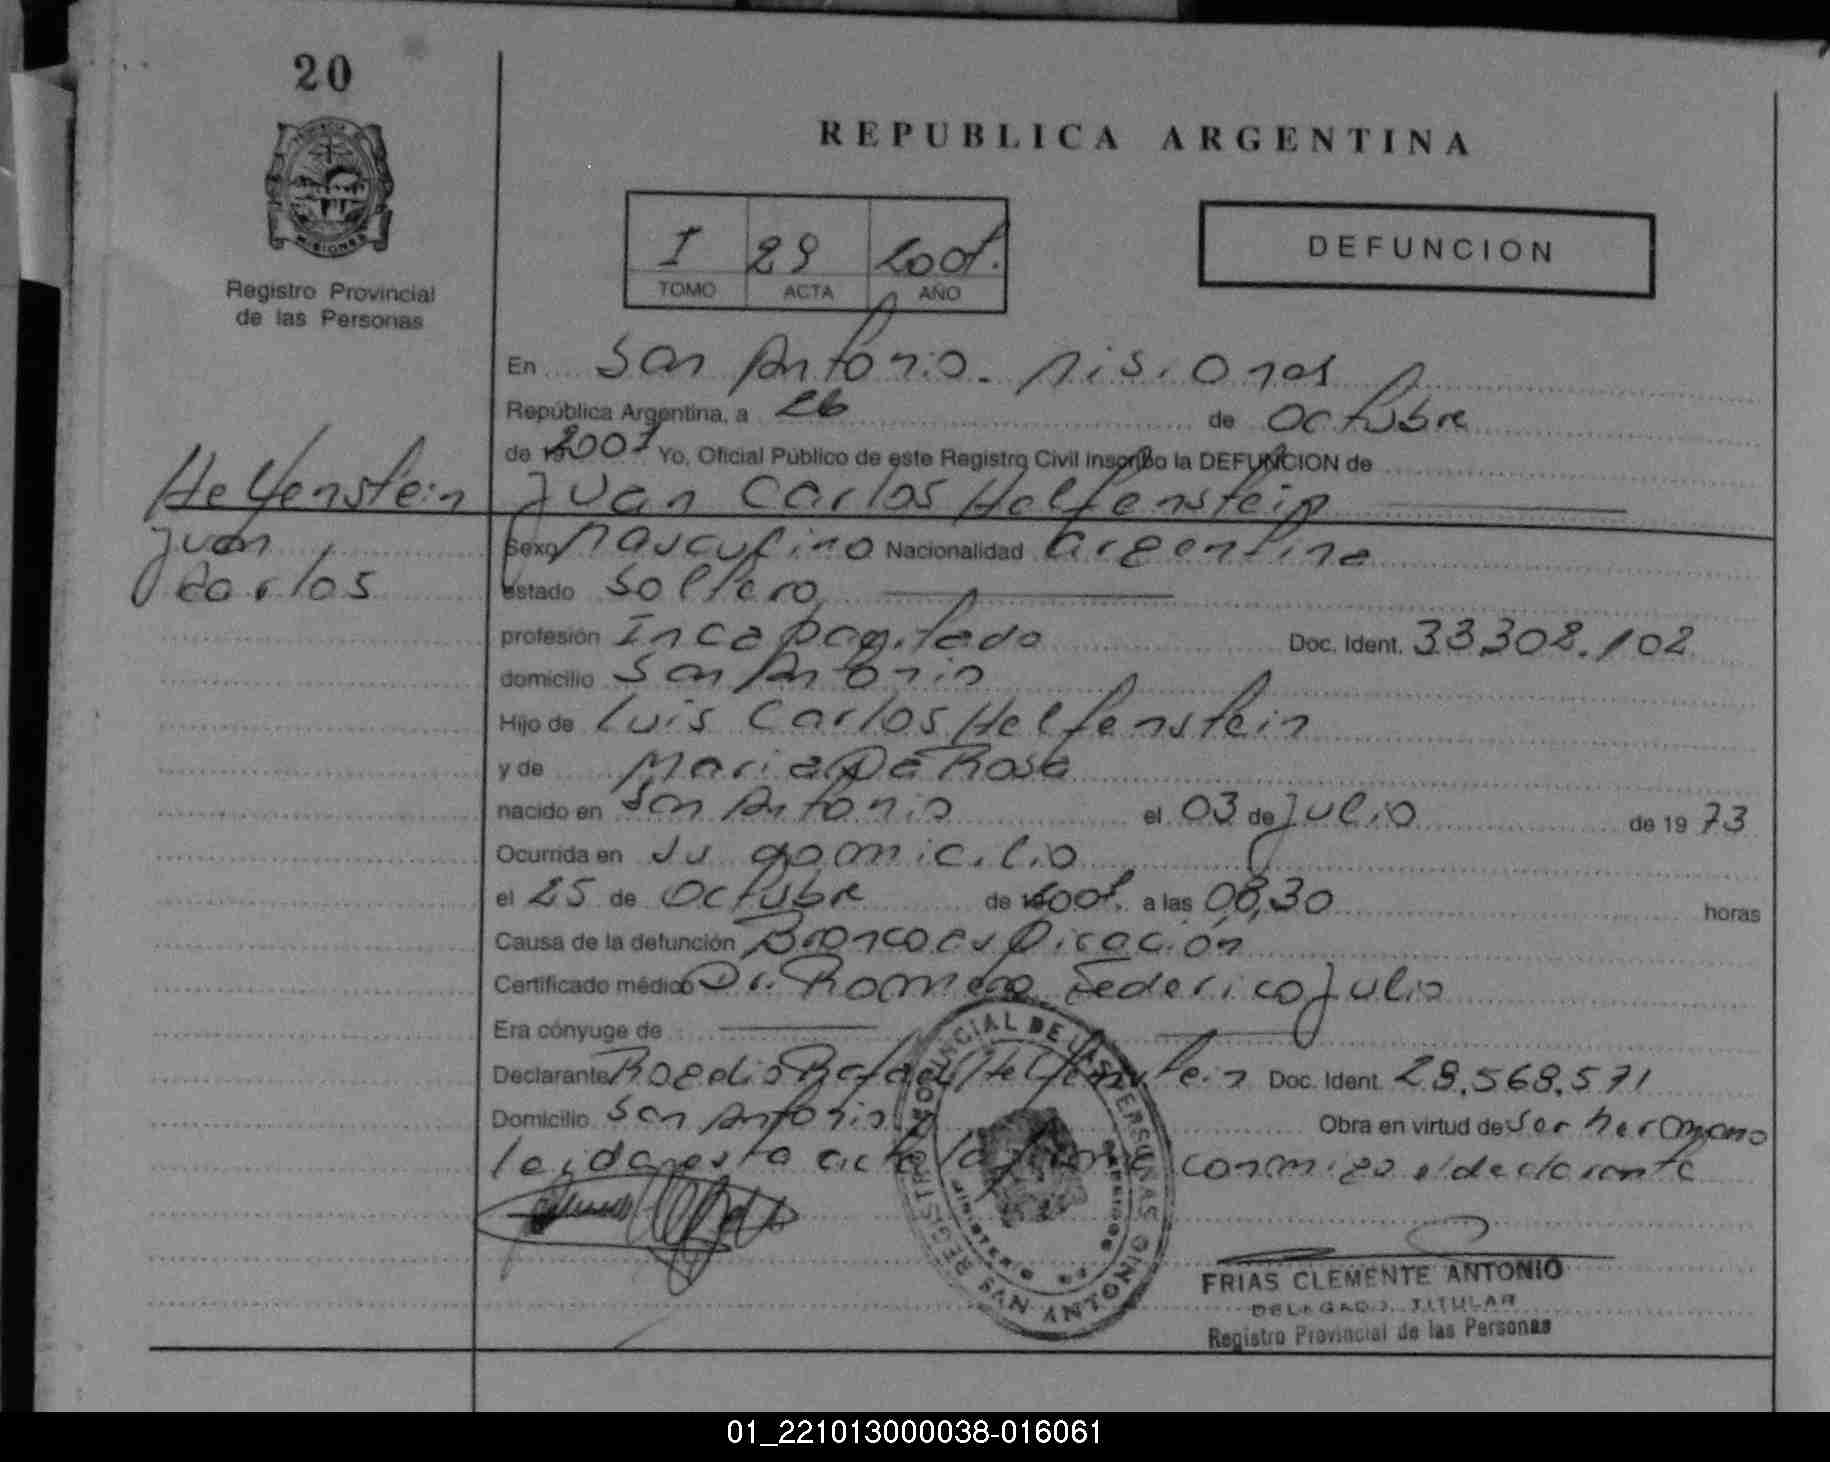 20
REPUBLICA ARGENTINA
MISIONES
Registro Provincial
de las Personas
I 29 2001.
TOMO ACTA AÑO
DEFUNCION
En San Antonio - Misiones
República Argentina, a 26 de Octubre
de 2001 Yo, Oficial Público de este Registro Civil inscribo la DEFUNCION de
Helfenstein
Juan
Carlos
Juan Carlos Helfenstein
Sexo Masculino Nacionalidad argentina
estado Soltero
profesión Incapacitado Doc. Ident. 33.302.102
domicilio San Antonio
Hijo de Luis Carlos Helfenstein
y de Maria Da Rosa
nacido en San Antonio el 03 de Julio de 1973
Ocurrida en su domicilio
el 25 de Octubre de 2001. a las 08,30 horas
Causa de la defunción Broncoaspiración
Certificado médico Dr. Romero Federico Julio
Era cónyuge de
Declarante Rogelio Rafael Helfenstein Doc. Ident. 28.568.571
Domicilio San Antonio Obra en virtud de ser hermano
leida esta acta la firma conmigo el declarante
REGISTRO PROVINCIAL DE LAS PERSONAS
SAN ANTONIO
FRIAS CLEMENTE ANTONIO
DELEGADO TITULAR
Registro Provincial de las Personas
01_221013000038-016061